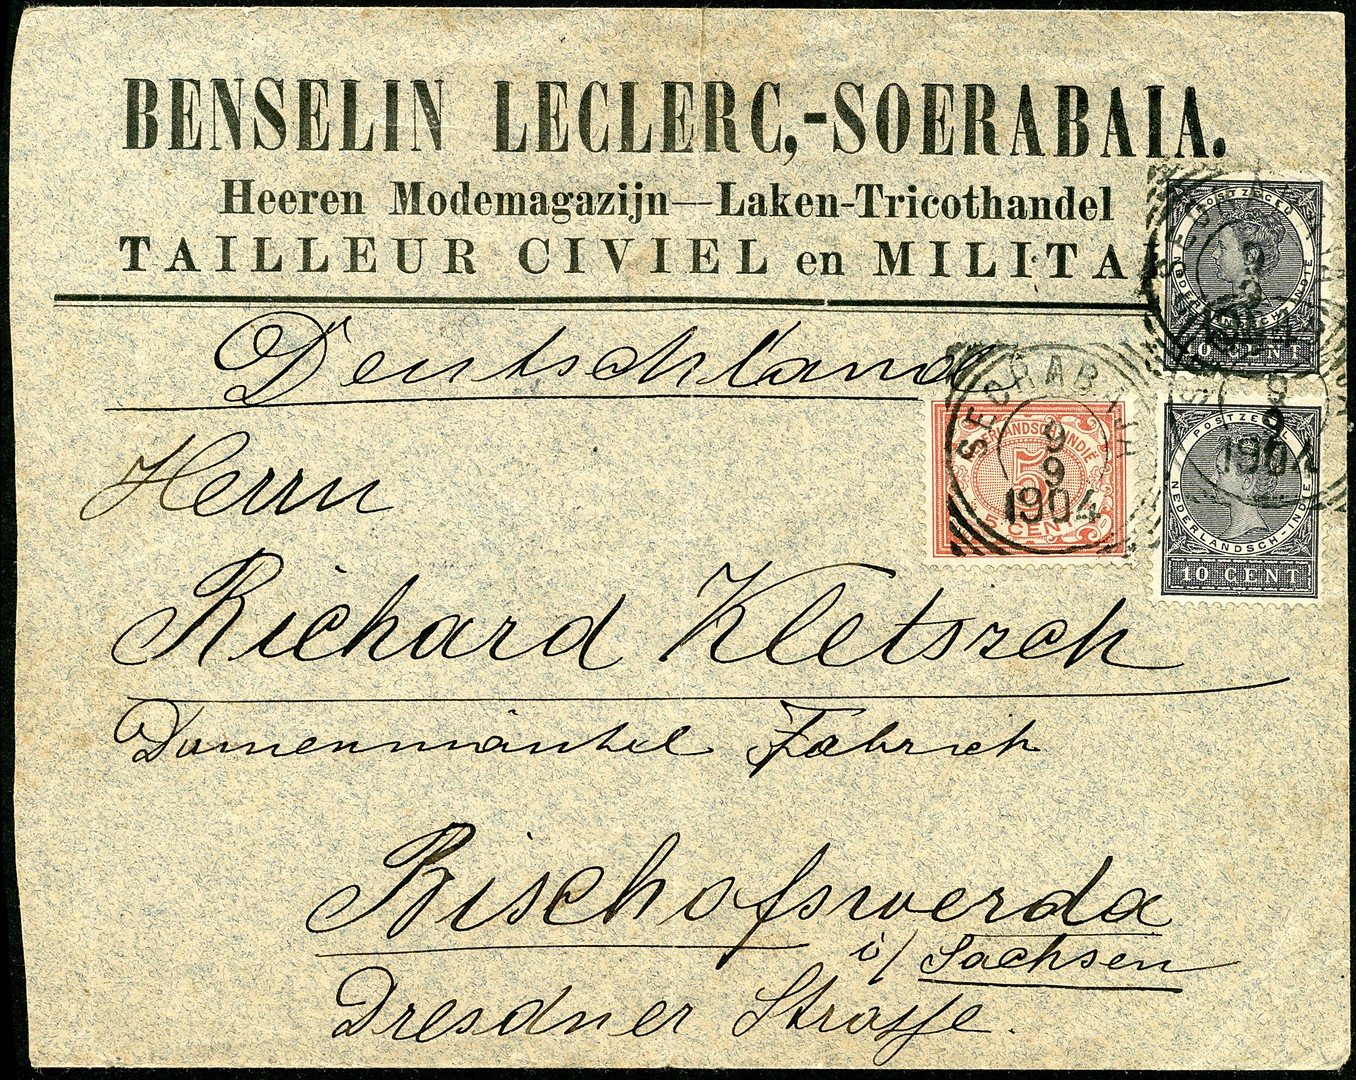 BENSELIN LECLERC,-SOERABAIA.
Heeren Modemagazijn—Laken-Tricothandel
TAILLEUR CIVIEL en MILITA
POSTZEGEL
NEDERLANDSCH-INDIE
10 CENT
Deutschland
SOERABAJA
9
9
1904
NEDERLANDSCH-INDIË
5
5 CENT
POSTZEGEL
NEDERLANDSCH-INDIE
10 CENT
9
9
1904
Herrn
Richard Kletzsch
Damenmäntel Fabrick
Bischofswerda
i/ Sachsen
Dresdner Strasse.